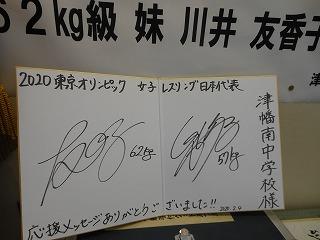 62kg級 妹 川井 友香子
津
2020 東京オリンピック 女子 レスリング日本代表
津幡南中学校様
62kg
57kg
応援メッセージありがとうございました!!